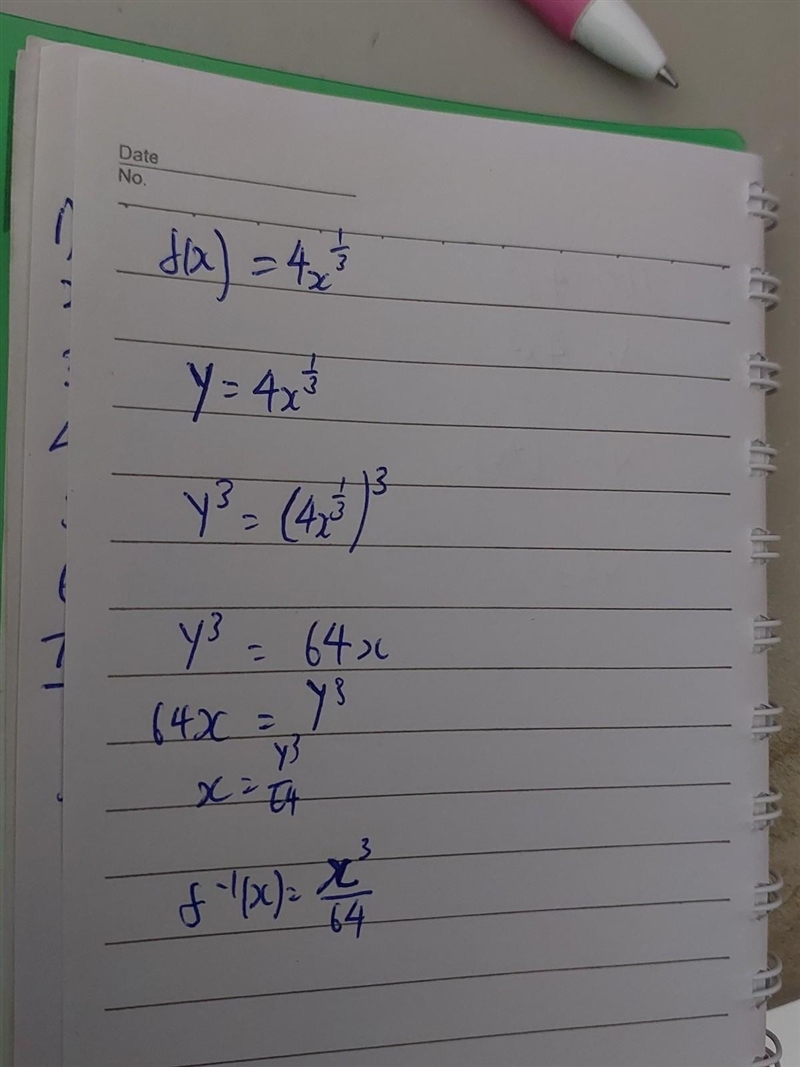 Date
No.
f(x) = 4x^{1/3}
y = 4x^{1/3}
y^3 = (4x^{1/3})^3
y^3 = 64x
64x = y^3
x = y^3/64
f^{-1}(x) = x^3/64